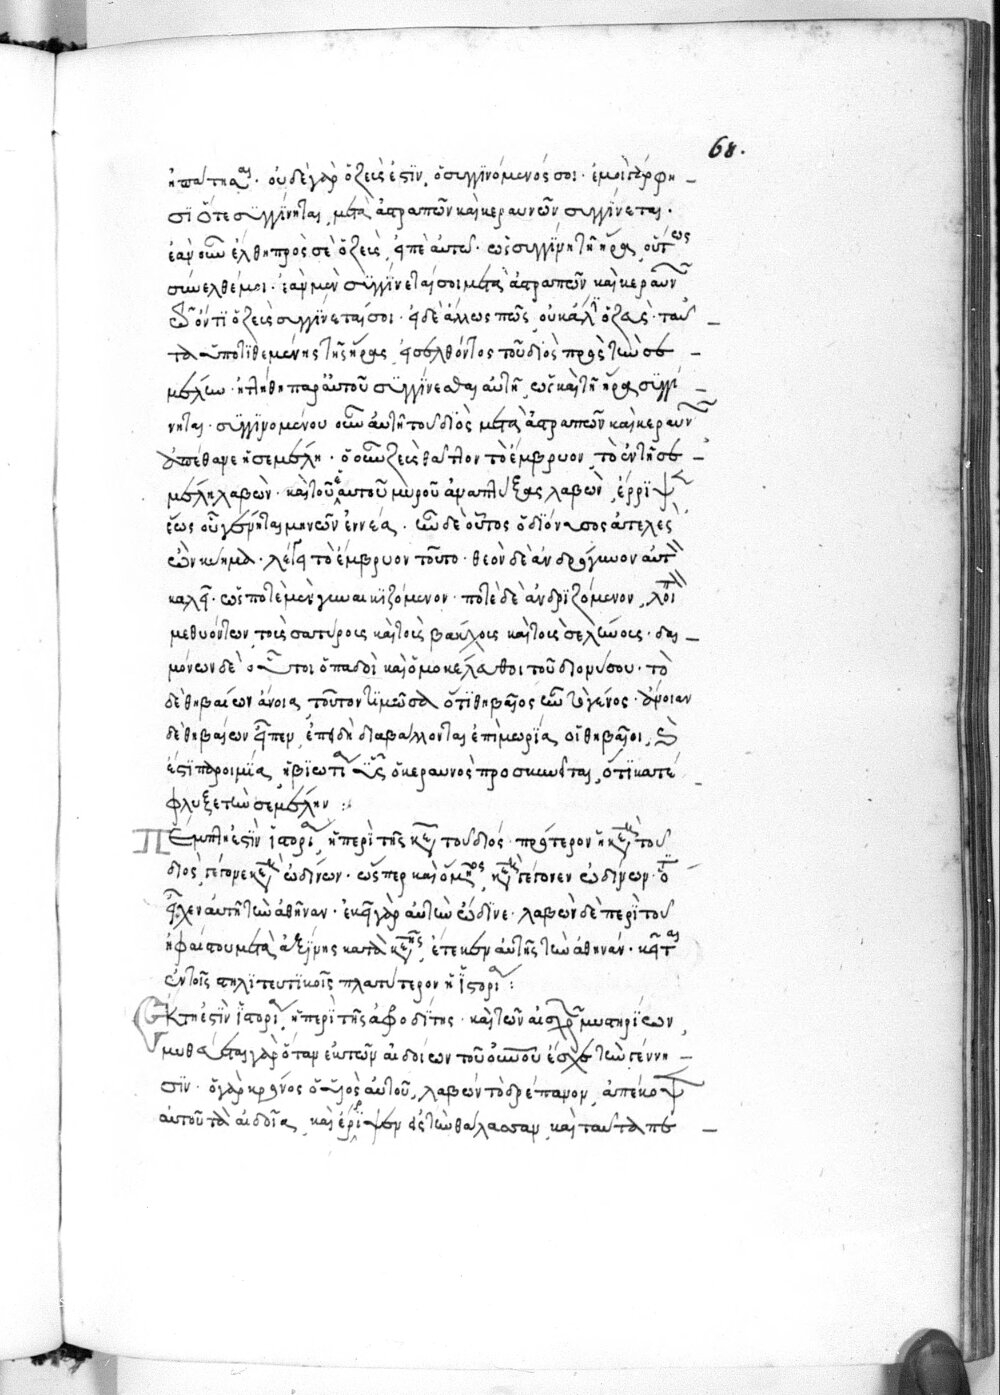 68.
ἠπάτησας. οὐδὲ γὰρ ὁ ζεὺς ἐστὶν, ὁ συγγινόμενός σοι. ἐμοὶ γάρ φη
σι ὅτε συγγίνηται, μετὰ ἀστραπῶν καὶ κεραυνῶν συγγίνεται.
ἐὰν οὖν ἔλθη πρὸς σὲ ὁ ζεὺς, εἰπὲ αὐτῶ. ὡς συγγίνη τῆ ἥρα, οὕτως
συνελθέ μοι. ἐὰν μὲν συγγίνεταί σοι μετὰ ἀστραπῶν καὶ κεραυνῶν
ὄντι ὁ ζεὺς συγγίνεταί σοι. εἰ δὲ ἄλλως πῶς, οὐκ ἄλλ ὁ ζεὺς. ταῦ
τα ὑποτιθεμένης τῆς ἥρας, εἰσελθόντος τοῦ διὸς πρὸς τὴν σε
μέλην. ἠτήθη παρ αὐτοῦ συγγίνεσθαι αὐτῆ, ὡς καὶ τῆ ἥρα συγγί
νηται. συγγινομένου οὖν αὐτῆ τοῦ διὸς μετὰ ἀστραπῶν καὶ κεραυνῶν
ἀπέθανε ἡ σεμέλη. ὁ οὖν ζεὺς θᾶττον τὸ ἔμβρυον, τὸ ἐν τῆ σε
μέλη λαβὼν. καὶ τοῦ ἑαυτοῦ μηροῦ ἀναπτύξας λαβὼν, ἔρριψ
ἕως οὗ γένηται μηνῶν ἐννέα. ἦν δὲ οὗτος ὁ διόνυσος ἀτελὲς
ὢν κύημα. λέγει τὸ ἔμβρυον τοῦτο. θεὸν δὲ ἀνδρόγυνον αὐτ
καλεῖ. ὡς ποτὲ μὲν γυναικιζόμενον. ποτὲ δὲ ἀνδριζόμενον,
μεθυόντων τοῖς σατύροις καὶ τοῖς βάκχοις καὶ τοῖς σελήνοις. δαι
μόνων δὲ οὗτοι ὀπαδοὶ καὶ ὁμοκέλευθοι τοῦ διονύσου. τὸ
δὲ θηβαίων ἄνοια τοῦτον τιμῶσα ὅτι θηβαῖος ἦν τὸ γένος. ἄνοιαν
δὲ θηβαίων εἶπεν, ἐπειδὴ διαβάλλονται ἐπὶ μωρία οἱ θηβαῖοι,
ἐστι παροιμία, ὁ κεραυνὸς προσκυνεῖται, ὅτι κατέ
φλυξε τὴν σεμέλην :
Πέμπτη ἐστὶν ἱστορία, ἡ περὶ τῆς τοῦ διός. πρότερον ἡ τοῦ
διὸς, γέγονε ὠδίνων. ὥσπερ καὶ ὁ μηρος, γέγονεν ὠδίνων.
εἶχεν αὐτῆ τὴν ἀθηνᾶν. ἐκεῖ γὰρ αὐτὴν ὤδινε. λαβὼν δὲ περὶ τοῦ
ἡφαίστου μετὰ ἀξίνης κατὰ ἔτεκεν αὐτῆς τὴν ἀθηνᾶν. κεῖται
ἐν τοῖς στηλιτευτικοῖς πλατύτερον ἡ ἱστορία :
Ἕκτη ἐστὶν ἱστορία, ἡ περὶ τῆς ἀφροδίτης. καὶ τῶν αἰσχρῶν μυστηρίων,
μυθεύεται γὰρ ὅταν ἐκ τῶν αἰδοίων τοῦ οὐρανοῦ ἔσχε τὴν γέννη
σιν. ὁ γὰρ κρόνος ὁ υἱὸς αὐτοῦ, λαβὼν τὸ δρέπανον, ἀπέκοψ
αὐτοῦ τὰ αἰδοῖα, καὶ ἔρριψεν εἰς τὴν θάλασσαν, καὶ ταῦτα πε